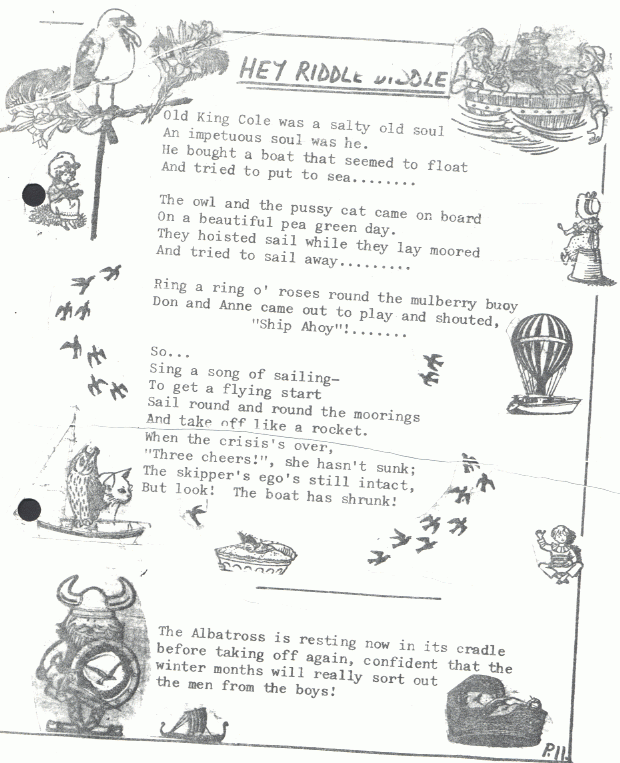 HEY RIDDLE DIDDLE
Old King Cole was a salty old soul
An impetuous soul was he.
He bought a boat that seemed to float
And tried to put to sea........
The owl and the pussy cat came on board
On a beautiful pea green day.
They hoisted sail while they lay moored
And tried to sail away.........
Ring a ring o' roses round the mulberry buoy
Don and Anne came out to play and shouted,
"Ship Ahoy"!.......
So...
Sing a song of sailing-
To get a flying start
Sail round and round the moorings
And take off like a rocket.
When the crisis's over,
"Three cheers!", she hasn't sunk;
The skipper's ego's still intact,
But look! The boat has shrunk!
The Albatross is resting now in its cradle
before taking off again, confident that the
winter months will really sort out
the men from the boys!
P.11.